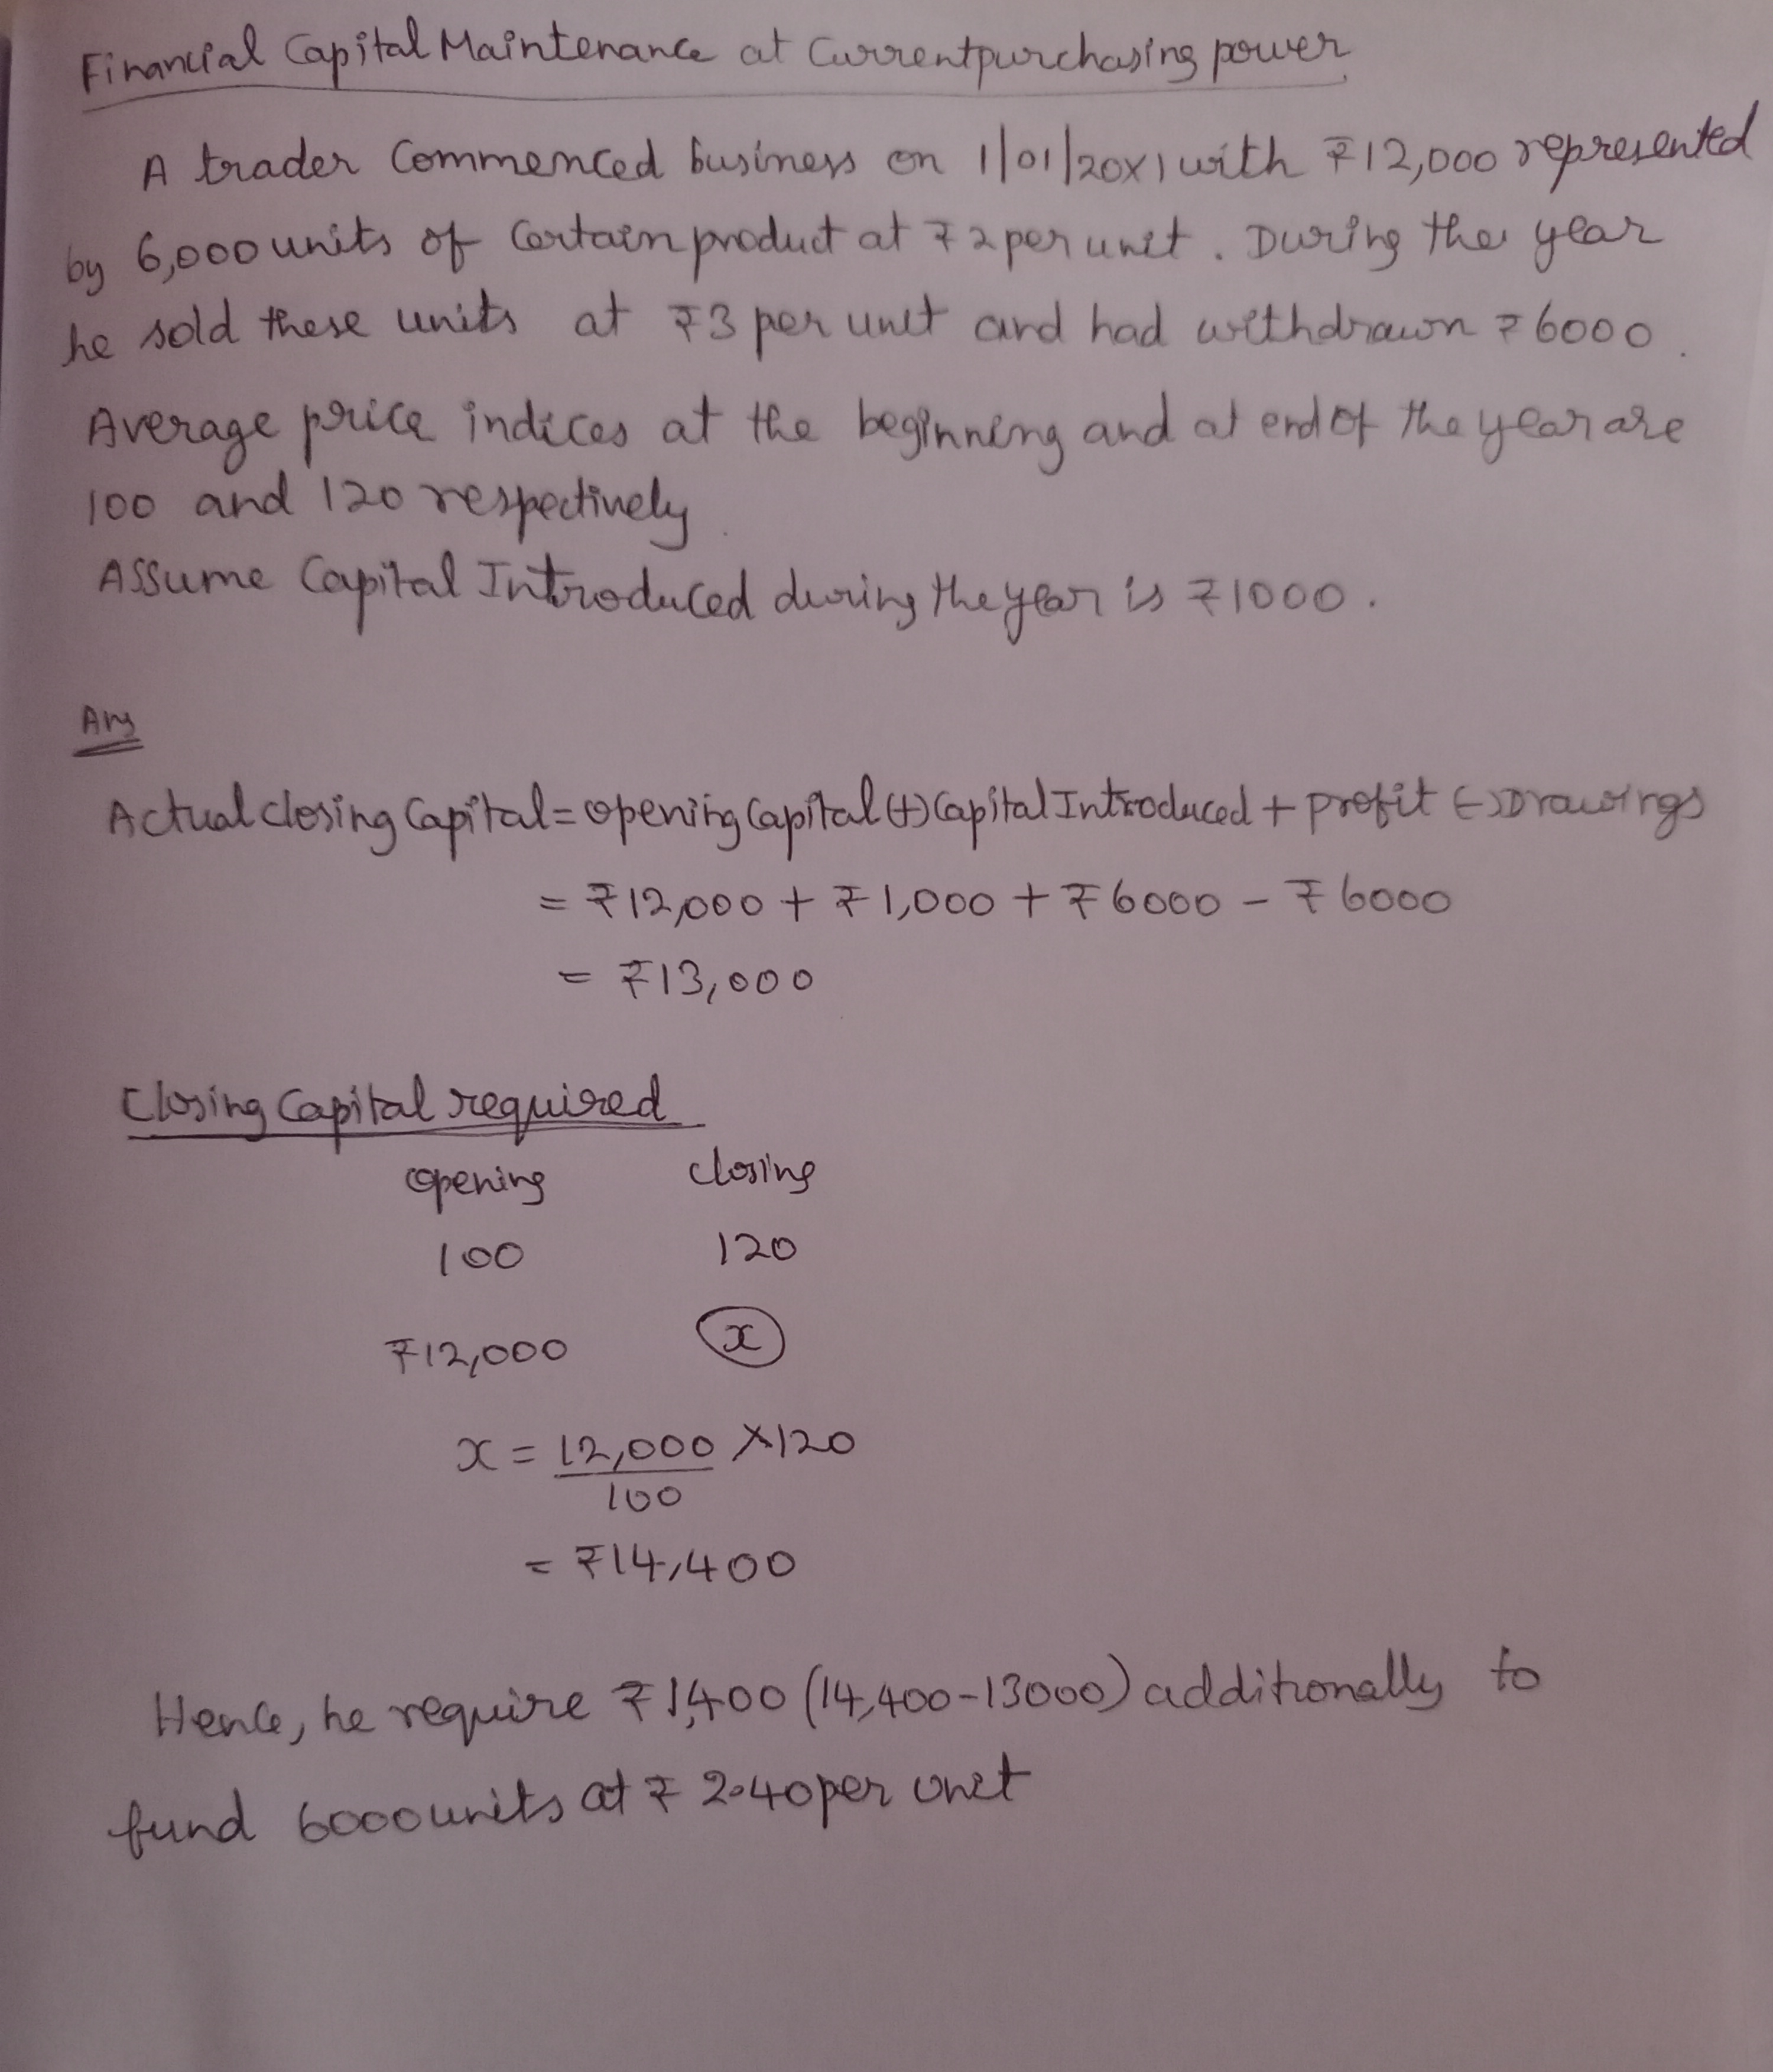 Financial Capital Maintenance at Currentpurchasing power
A trader Commenced business on 1/01/20X1 with ₹12,000 represented
by 6,000 units of Certain product at ₹2 per unit. During the year
he sold these units at ₹3 per unit and had withdrawn ₹6000.
Average price indices at the beginning and at end of the year are
100 and 120 respectively
Assume Capital Introduced during the year is ₹1000.
Ans
Actual closing Capital = opening Capital (+) Capital Introduced + profit (-) Drawings
= ₹12,000 + ₹1,000 + ₹6000 - ₹6000
= ₹13,000
Closing Capital required
opening closing
100 120
₹12,000 x
x = 12,000 × 120
100
= ₹14,400
Hence, he require ₹1,400 (14,400-13000) additionally to
fund 6000 units at ₹2.40 per unit